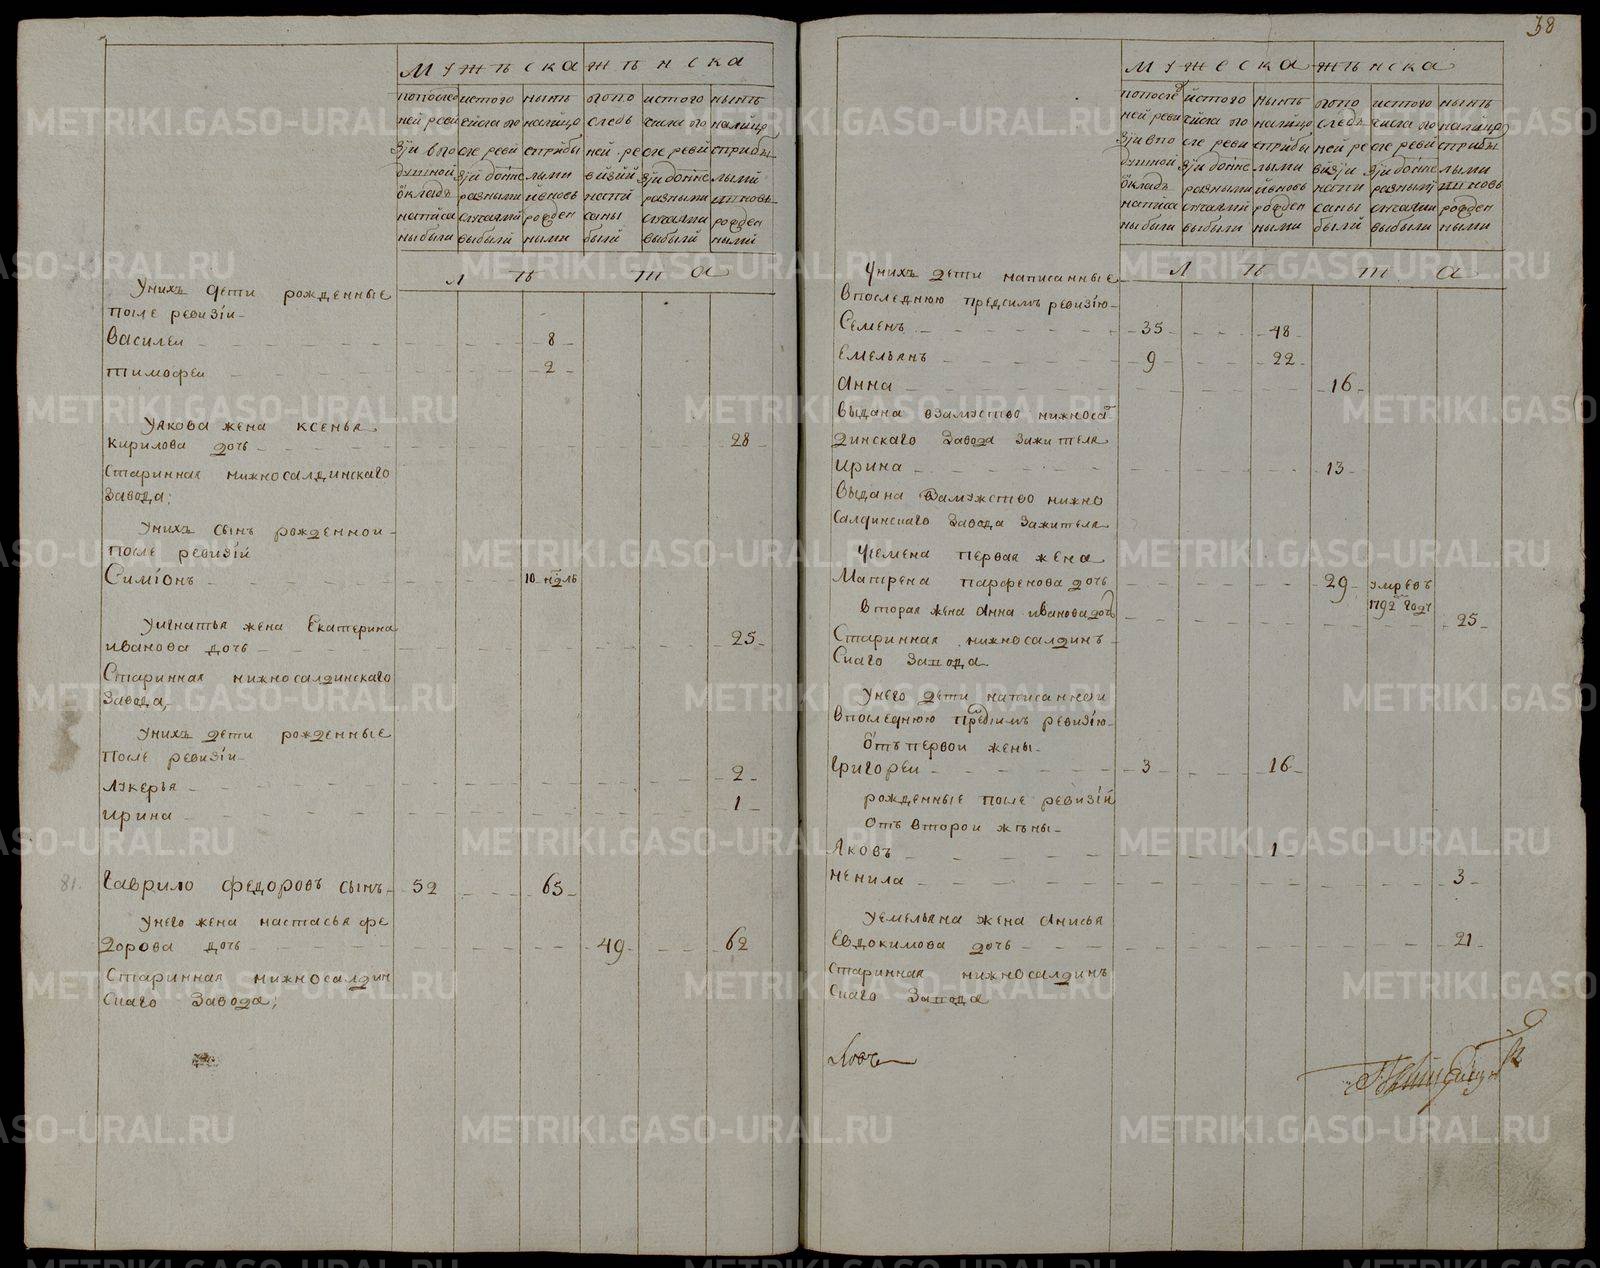 38
Мужеска женска
попослед ней реви зіи впо душной окладъ написа ны были
истого числа по сле реви зіи доныне разными случаями выбыли
ныне налицо сприбы лыми ивновь рожден ными
попо следъ ней ре визіи напи саны были
истого числа по сле реви зіи доныне разными случаями выбыли
ныне налицо сприбы лыми ивновь рожден ными
лѣта
Унихъ дети рожденные
после ревизіи
Василеи 8
тимофеи 2
Уякова жена ксенья
кирилова дочь 28
Старинная нижносалдинскаго
Завода;
Унихъ сынъ рожденнои
после ревизіи
Симіонъ 10 недль
Уигнатья жена Екатерина
иванова дочь 25
Старинная нижносалдинскаго
Завода,
Унихъ дети рожденные
после ревизіи
лукерья 2
ирина 1
81. Гаврило федоровъ сынъ 52 65
Унего жена настасья фе
дорова дочь 49 62
Старинная нижносалдин
скаго Завода;
Мужеска женска
попослед ней реви зіи впо душной окладъ написа ны были
истого числа по сле реви зіи доныне разными случаями выбыли
ныне налицо сприбы лыми ивновь рожден ными
попо следъ ней ре визіи напи саны были
истого числа по сле реви зіи доныне разными случаями выбыли
ныне налицо сприбы лыми ивновь рожден ными
лѣта
Унихъ дети написанные
впоследнюю предсимъ ревизію
Семенъ 35 48
Емельянъ 9 22
Анна 16
выдана взамужство нижноса
динскаго Завода Зажителя
ирина 13
выдана взамужство нижно
Салдинскаго Завода Зажителя
Усемена первая жена
Матрена парфенова дочь 29 умре въ 1792 годе
вторая жена Анна иванова дочь 25
Старинная нижносалдинъ
Скаго Завода
Унего дети написаннои
впоследнюю предсимъ ревизію
Отъ первои жены
григореи 3 16
рожденные после ревизіи
Отъ второи жены
Яковъ 1
ненила 3
Уемельяна жена Анисья
Евдокимова дочь 21
Старинная нижносалдинъ
Скаго Завода
METRIKI.GASO-URAL.RU